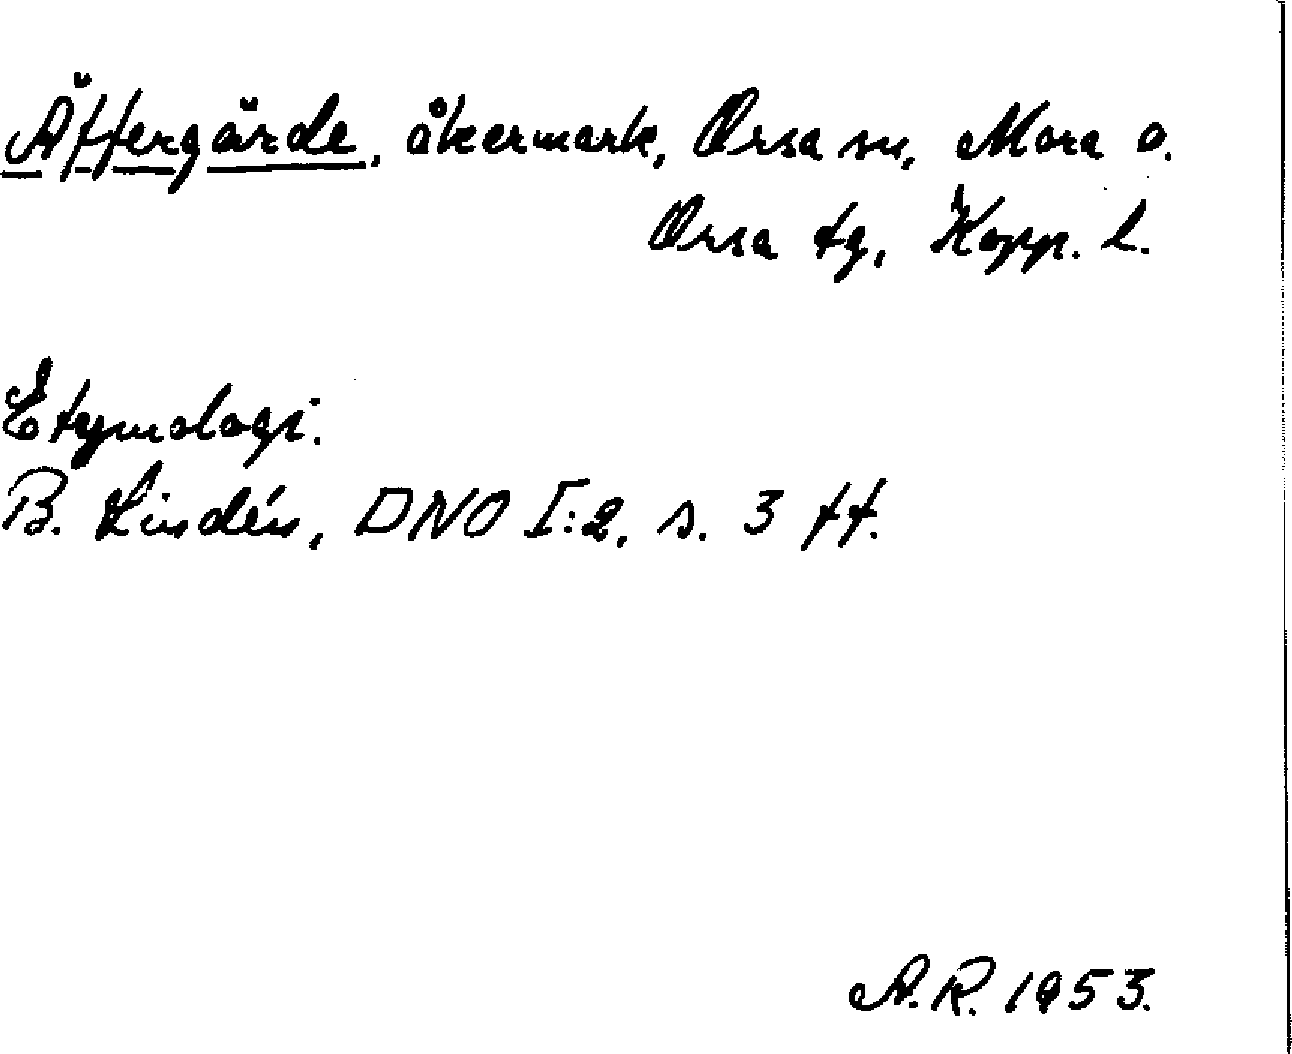 Äffergärde, åkermark, Orsa sn, Mora o.
Orsa tg, Kopp. l.
Etymologi.
B. Lindén, DNO I:2, s. 3 ff.
A.R. 1953.